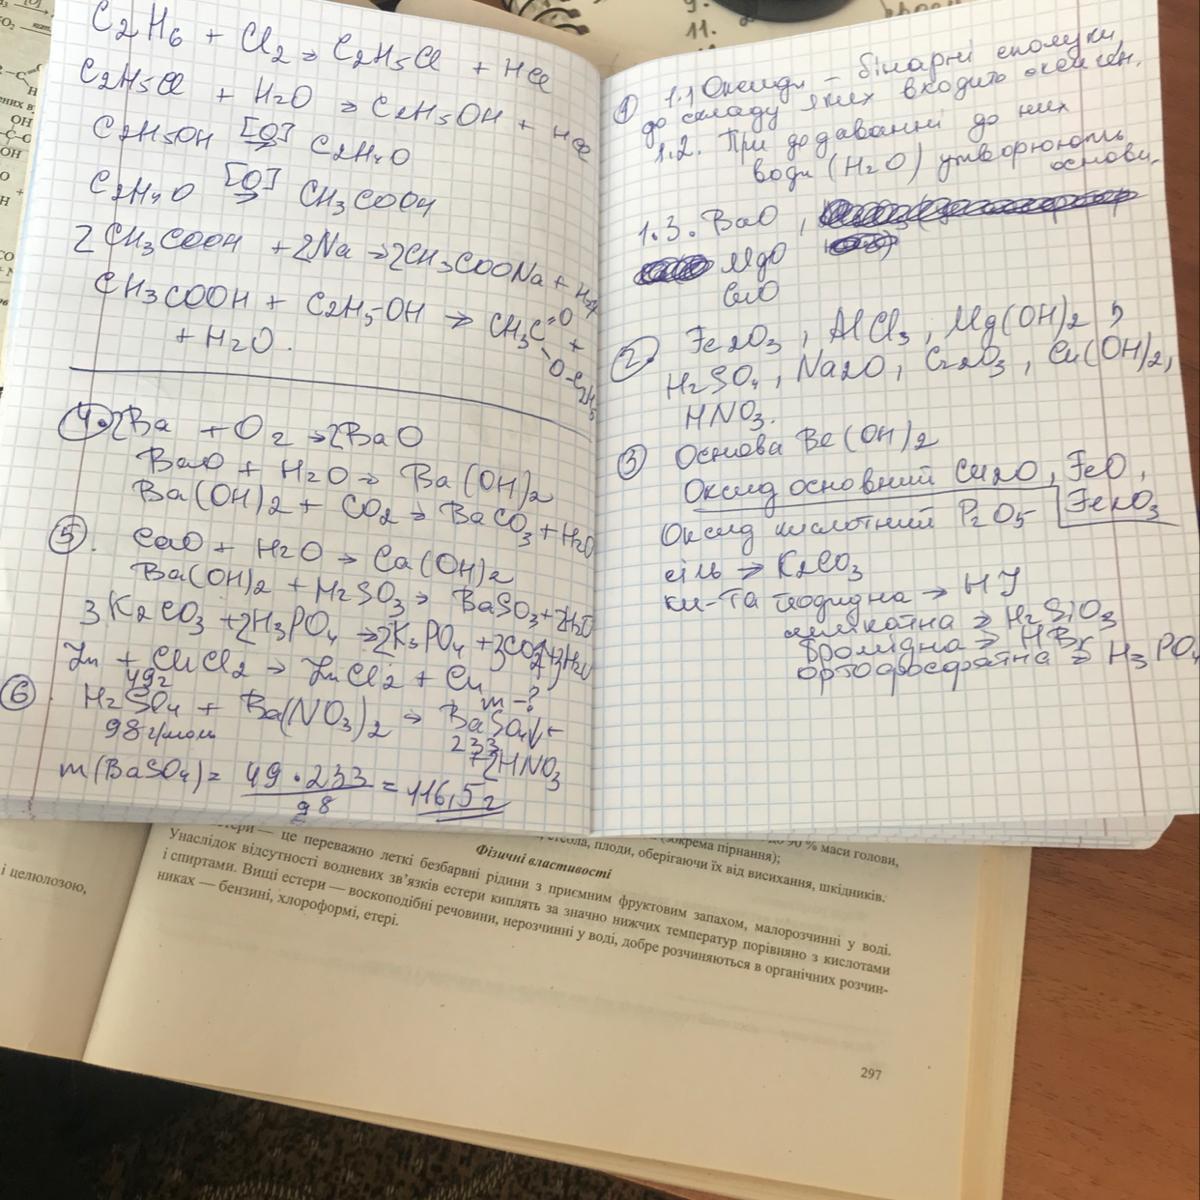 C2H6 + Cl2 → C2H5Cl + HCl
C2H5Cl + H2O → C2H5OH + HCl
C2H5OH [O]→ C2H4O
C2H4O [O]→ CH3COOH
2CH3COOH + 2Na → 2CH3COONa + H2↑
CH3COOH + C2H5OH → CH3C =O
-O-C2H5 +
+ H2O.
4. 2Ba + O2 → 2BaO
BaO + H2O → Ba(OH)2
Ba(OH)2 + CO2 → BaCO3 + H2O
5. CaO + H2O → Ca(OH)2
Ba(OH)2 + H2SO3 → BaSO3 + 2H2O
3K2CO3 + 2H3PO4 → 2K3PO4 + 3CO2 + 3H2O
Zn + CuCl2 → ZnCl2 + Cu
49г m-?
6. H2SO4 + Ba(NO3)2 → BaSO4↓ +
98г/моль 233
+2HNO3
m(BaSO4) = 49 · 233 / 98 = 116,5 г
11.
1 1.1 Оксиди – бінарні сполуки,
до складу яких входить оксиген.
1.2. При додаванні до них
води (H2O) утворюють
основи.
1.3. BaO,
MgO
CuO
2. Fe2O3, AlCl3, Mg(OH)2,
H2SO4, Na2O, Cr2O3, Cu(OH)2,
HNO3.
3 Основа Be(OH)2
Оксид основний Cu2O, FeO,
Fe2O3
Оксид кислотний P2O5
сіль → K2CO3
ки-та йодидна → HJ
силікатна → H2SiO3
бромідна → HBr
ортофосфатна → H3PO4
до 90 % маси голови,
стебла, плоди, оберігаючи їх від висихання, шкідників.
(зокрема пірнання);
Фізичні властивості
— це переважно леткі безбарвні рідини з приємним фруктовим запахом, малорозчинні у воді.
Унаслідок відсутності водневих зв’язків естери киплять за значно нижчих температур порівняно з кислотами
і спиртами. Вищі естери — воскоподібні речовини, нерозчинні у воді, добре розчиняються в органічних розчин-
никах — бензині, хлороформі, етері.
і целюлозою,
297